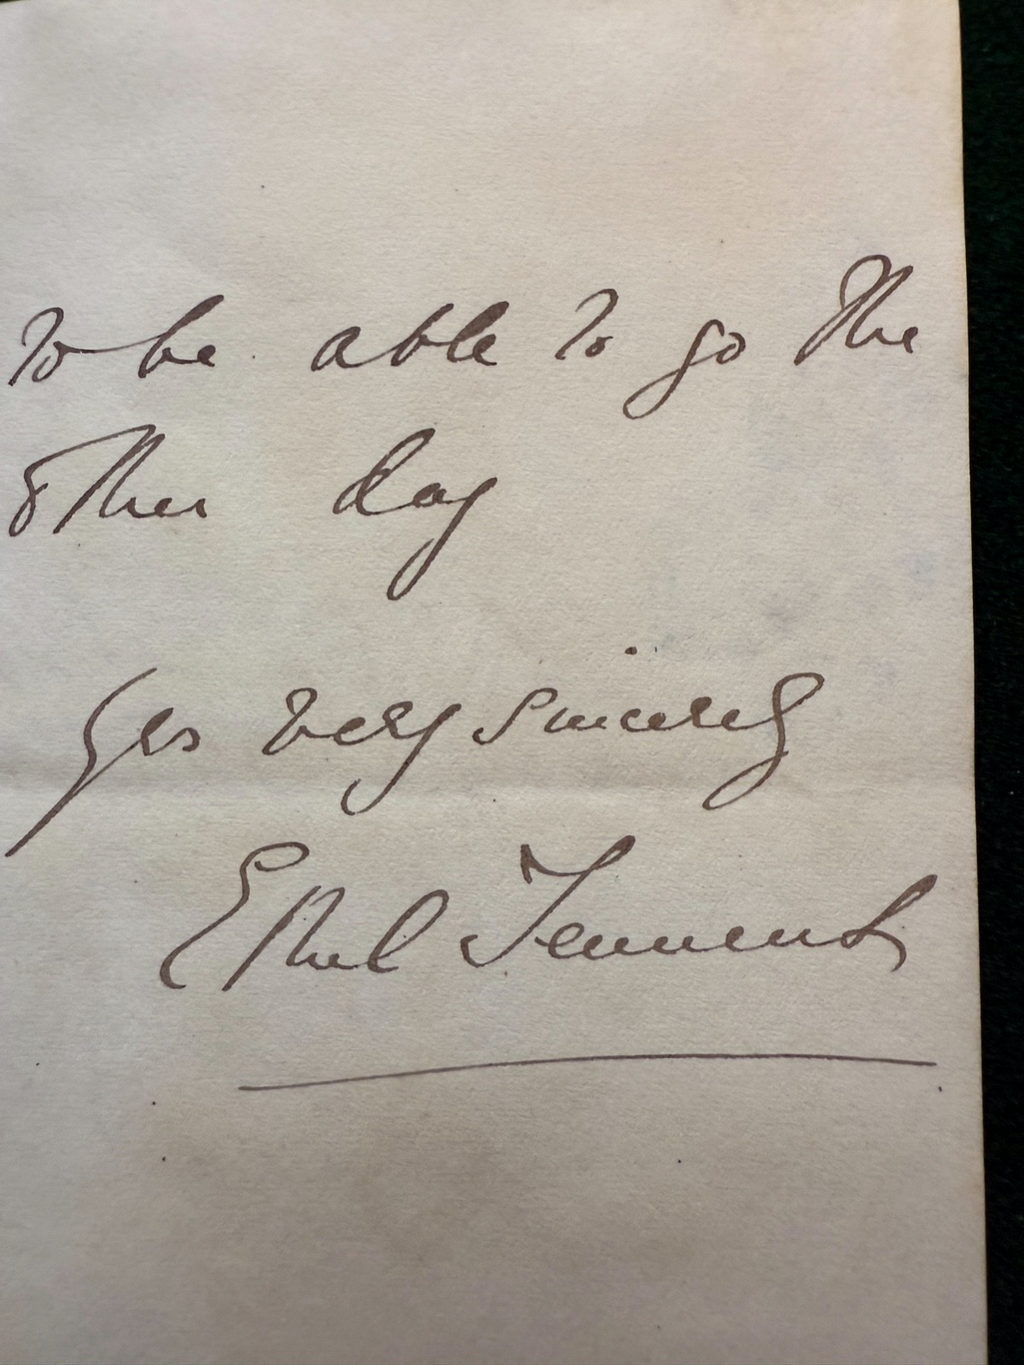 to be able to go the
other day
Yrs very sincerely
Ethel Tennant